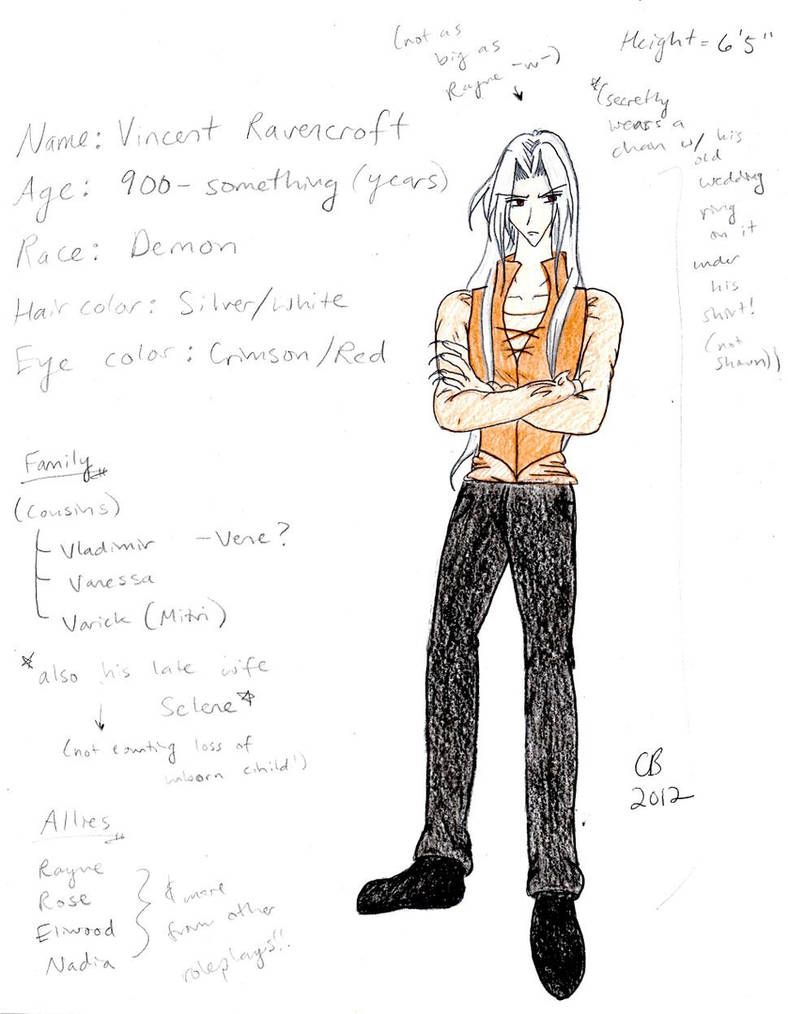 (not as
big as
Rayne -w-)
Height = 6'5"
*(secretly
wears a
chain w/ his
old
wedding
ring
on it
under
his
shirt!
(not
shown))
Name: Vincent Ravencroft
Age: 900-something (years)
Race: Demon
Hair color: Silver/White
Eye color: Crimson/Red
Family
(cousins)
Vladimir -Vere?
Vanessa
Varick (Mitri)
*also his late wife
Selene*
(not counting loss of
unborn cihild!)
Allies
Rayne
Rose
Eliwood
Nadia
& more
from other
roleplays!!
CB
2012